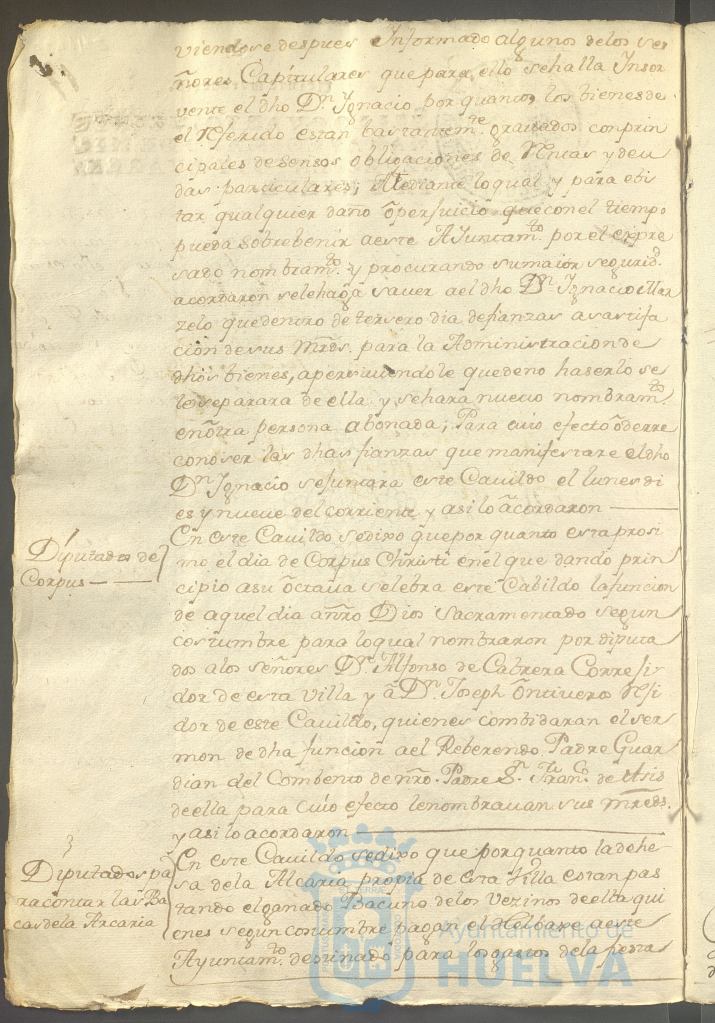 viendose despues Informado algunos de los se
ñores Capitulares que para ello se halla Insol
vente el dho Dn. Ignacio por quanto los bienes de
el referido estan bastantemte. gravados con prin
cipales de sensos obligaciones de Rentas y deu
das particulares; Mediante lo qual y para ebi
tar qualquier daño ò perjuicio que con el tiempo
pueda sobrebenir a este Ajuntamto. por el expre
sado nombramto. y procurando su maior segurid.
acordaron se le haga saver a el dho Dn. Ignacio Mar
zelo que dentro de tersero dia de fianzas a sastifa
cion de sus Mrds. para la Administracion de
dhos bienes, apersiviendole que de no haserlo se
le separara de ella y se hara nuevo nombramto.
en òtra persona abonada; Para cuio efecto ò de rre
conoser las dhas fianzas que manifestare el dho
Dn. Ignacio se juntara este Cavildo el lunes di
es y nueve del corriente y asi lo àcordaron
Diputados de
Corpus
En este Cavildo se dixo que por quanto esta prosi
mo el dia de Corpus Christi en el que dando prin
cipio a su òctava selebra este Cabildo la funcion
de aquel dia a ñro Dios Sacramentado segun
costumbre para lo qual nombraron por diputa
dos a los señores Dn. Alfonso de Cabrera Correji
dor de esta Villa y à Dn. Joseph Ontiveros Reji
dor de este Cavildo, quienes combidaran el ser
mon de dha funcion a el Reberendo Padre Guar
dian del Combento de ñro. Padre Sn. Franco. de Asis
de ella para cuio efecto le nombravan sus mreds.
y asi lo acordaron
Diputados pa
ra contar las Ba
cas de la Arcaria
En este Cavildo se dixo que por quanto la dehe
sa de la Alcaria propia de esta Villa estan pas
tando el ganado Bacuno de los Vezinos de ella qui
enes segun costumbre pagan el Helbaxe a este
Ayuntamto. destinado para los gastos de la fiesta
Ayuntamiento de
HUELVA